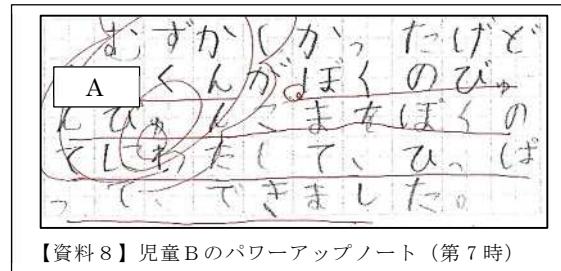 むずかしかったげど
A くんがぼくのびゅ
んびゅんごまをぼくの
てしわたして、ひっぱ
って、できました。
【資料８】児童Ｂのパワーアップノート（第７時）